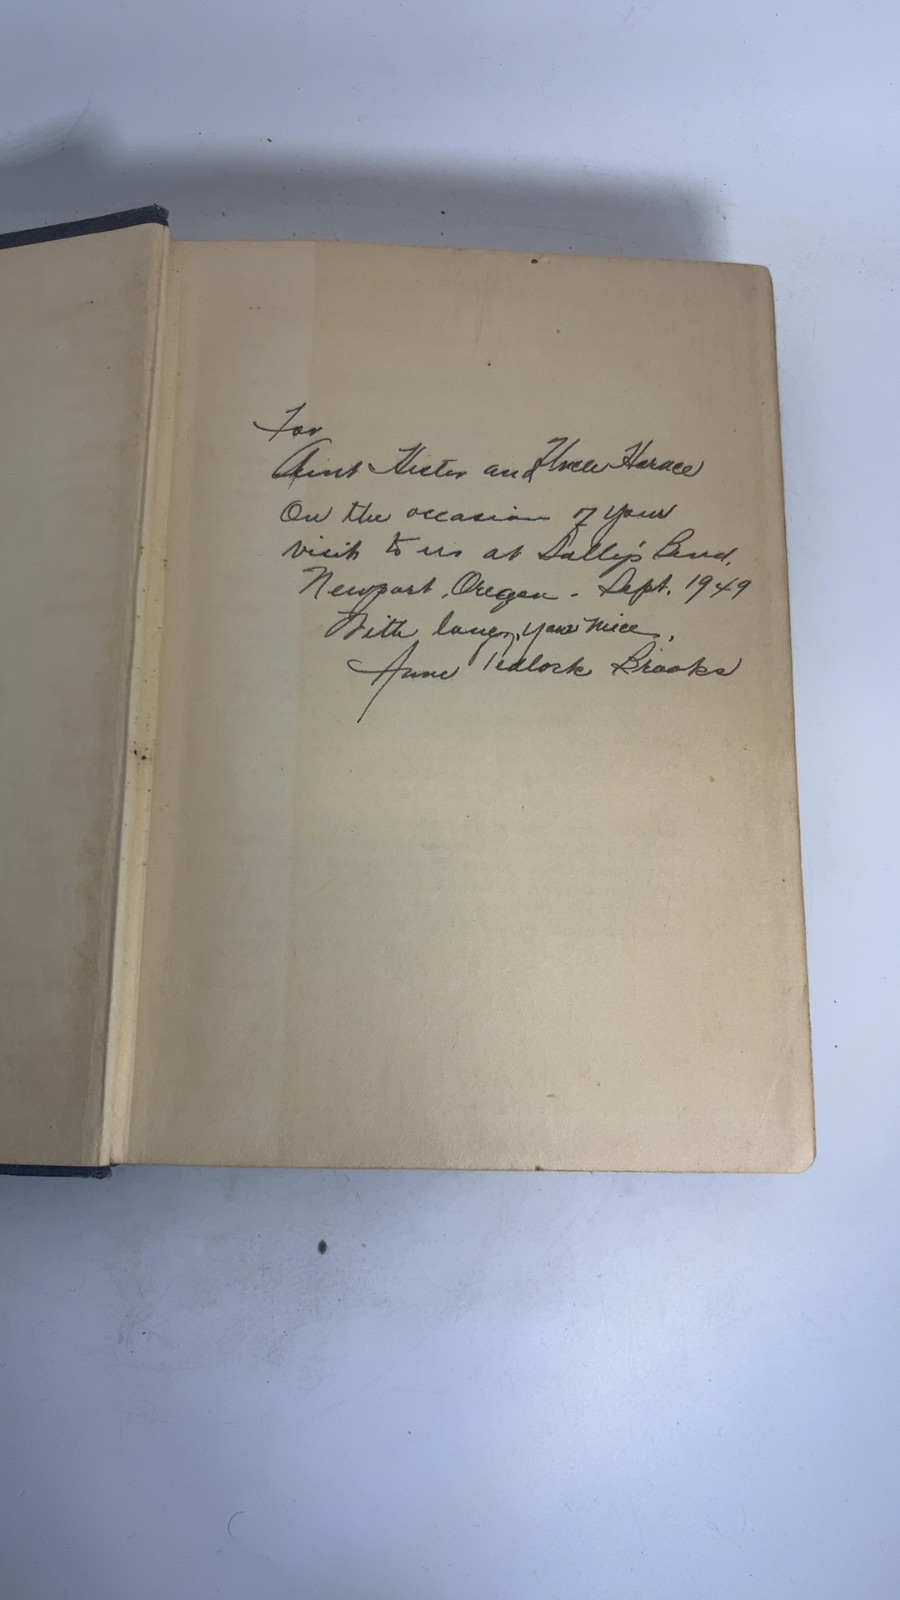 For
Aunt Hester and Uncle Horace
On the occasion of your
visit to us at Sally's Bend,
Newport, Oregon - Sept. 1949
With love, your niece,
Anne Tedlock Brooks